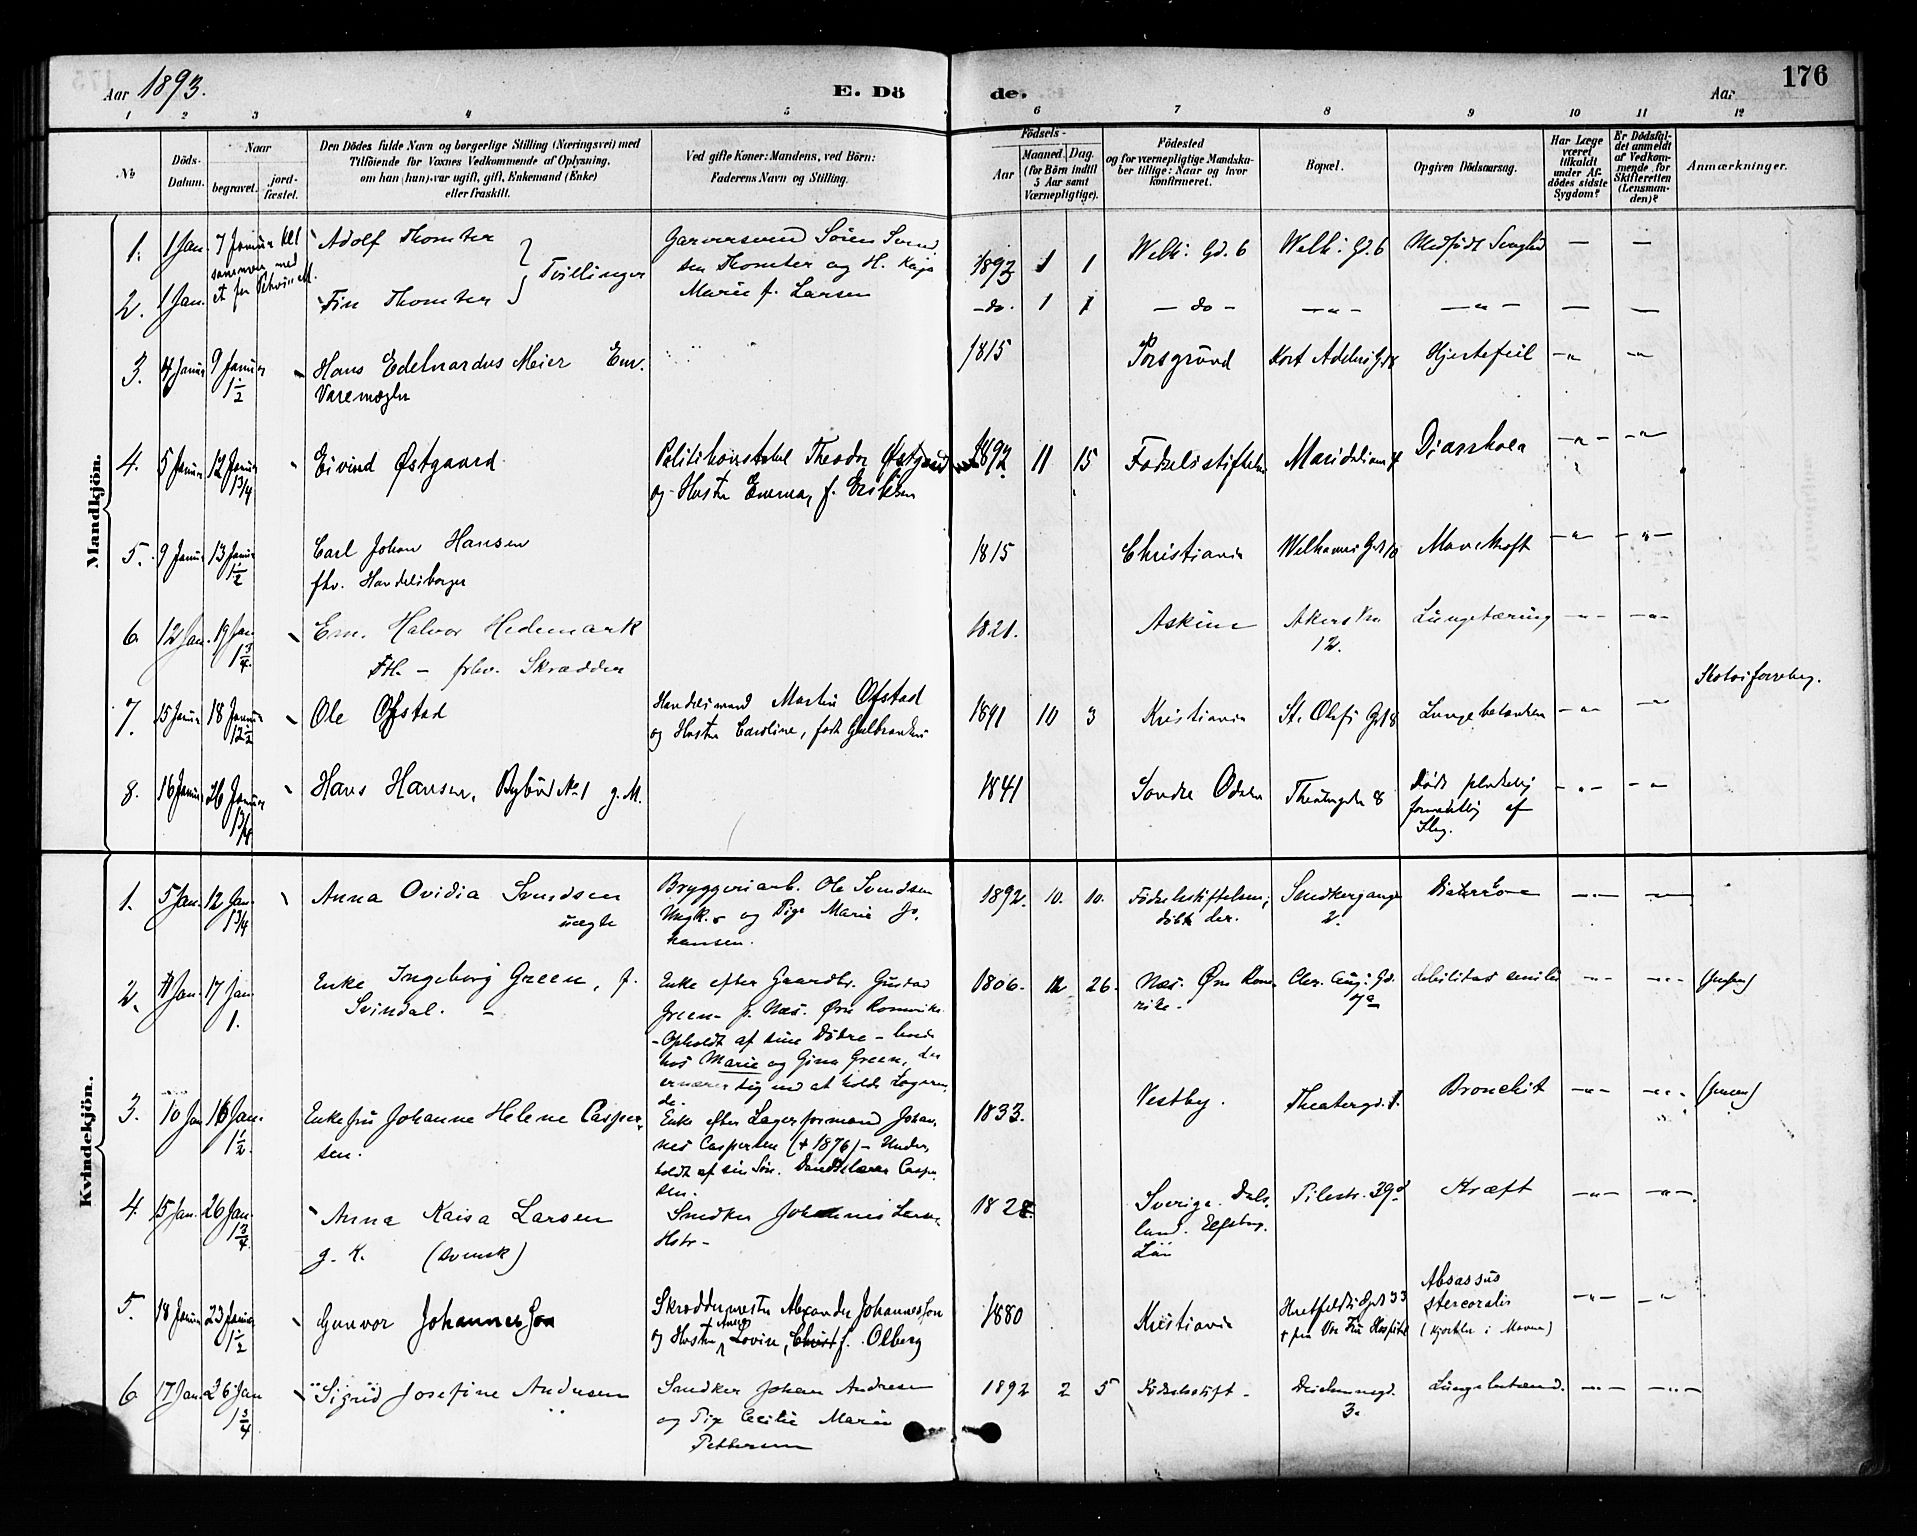 Aar 1893.
E. Dö
de.
176
Aar
1 2 3 4 5 6 7 8 9 10 11 12
No
Döds-Datum.
Naar
begravet.
jord-fæstet.
Den Dödes fulde Navn og borgerlige Stilling (Næringsvei) med
Tilföiende for Voxnes Vedkommende af Oplysning,
om han (hun) var ugift, gift, Enkemand (Enke)
eller fraskilt.
Ved gifte Koner: Mandens, ved Börn:
Faderens Navn og Stilling.
Födsels-
Aar
Maaned. Dag.
(for Börn indtil
5 Aar samt
Værnepligtige).
Födested
og for værnepligtige Mandska-
ber tillige: Naar og hvor
konfirmeret.
Bopæl.
Opgiven Dödsaarsag.
Har Læge
været
tilkaldt
under Af-
dödes sidste
Sygdom?
Er Dödsfal-
det anmeldt
af Vedkom-
mende for
Skifteretten
(Lensman-
den)?
Anmærkninger.
Mandkjön.
1. 1 Jan. 7 Januar Adolf Thomter
sammen med
Tvillinger
Søren Svend
sen Thomter og H. Kaja
Marie f. Larsen
1893 1 1 Welh: Gd. 6 Welh: Gd. 6 Medfødt
2. 1 Jan. Fin Thomter
do. 1 1 do
3. 4 Januar 9 Januar 1/2 Hans Edelvardus Meier Em.
Varemægler
1815 Porsgrund Kort Adelers Gd Hjertefeil
4. 5 Januar 12 Januar 13/4 Eivind Østgaard
Politikonstabel Theodor Østgaard
og Hustru Emma, f. Eriksen
1892 11 15 Fødselsstiftelsen Diarrhoea
5. 9 Januar 13 Januar 1/2 Carl Johan Hansen
fhv. Handelsborger
1815 Christiania Welhavens Gd 10 Mavekræft
6. 12 Jan. 19 Jan. 1 3/4 Em. Halvor Hedemark
Fh. - fhv. Skrædder
1821. Askim Akersvn. 12. Lungetæring
7. 15 Januar 18 Januar 12 1/2 Ole Øfstad
Handelsmand Martin Øfstad
og Hustru Caroline, født Gulbrandsen
1891 10 3 Kristiania St. Olafs Gd 8 Lungebetændelse
8. 16 Januar 26 Januar Hans Hansen, Bybud No 1 g. M.
1841 Søndre Odalen Theatergaden 8 Døde pludselig
formentlig af
Slag.
Kvindekjön.
1. 5 Jan. 12 Jan. 13/4 Anna Ovidia Svendsen
uægte
Bryggeriarb. Ole Svendsen
Ungk. og Pige Marie Jo-
hansen.
1892. 10. 10. Fødselsstiftelsen,
døbt der.
Snedkergangen 2.
2. 11 Jan. 17 Jan. 1. Enke Ingeborg Green, f.
Svindal.
Enke efter Gaardbr. Gustav
Green - p. Næs. Øvre Romerike.
- Opholdt af sine Døtre -
hos Marie og Gina Green, der
ernærer sig ved at holde Logeren-
de.
1806. 12 26. Næs. Øvre Rome-
rike. debilitas senilis (Jensen)
3. 10 Jan 16 Jan. 1/2. Enkefru Johanne Helene Casper-
sen.
Enke efter Lagerformand Johan-
nes Caspersen (+ 1876) - Under-
holdt af sin Søn. Casper-
sen.
1833. Vestby. Theatergd. 1. Bronchit (Jensen)
4. 15 Jan. 26 Jan. 1 3/4 Anna Kaisa Larsen
g. K. (svensk)
Snedker Johannes Larsen
1828. Sverige. Dals-
land. Elfsborg.
Län
Pilestr. 39 Kræft
5. 18 Januar 23 Januar 1/2 Gunvor Johannesson
Skræddermester Alexander Johannesson
og Hustru Lovise, f. Olberg
1880 Kristiania Hretfeldts Gd 33
+ paa Vor Frue Hospital
Absassus
stercoralis
6. 17 Jan. 26 Jan 1 3/4 Sigrid Josefine Andresen
Snedker Johan Andresen
og Pige Cecilie Marie
Pettersen
1892 2 5 Fødselsstift. Deichmansgd. 3. Lungebetænd.